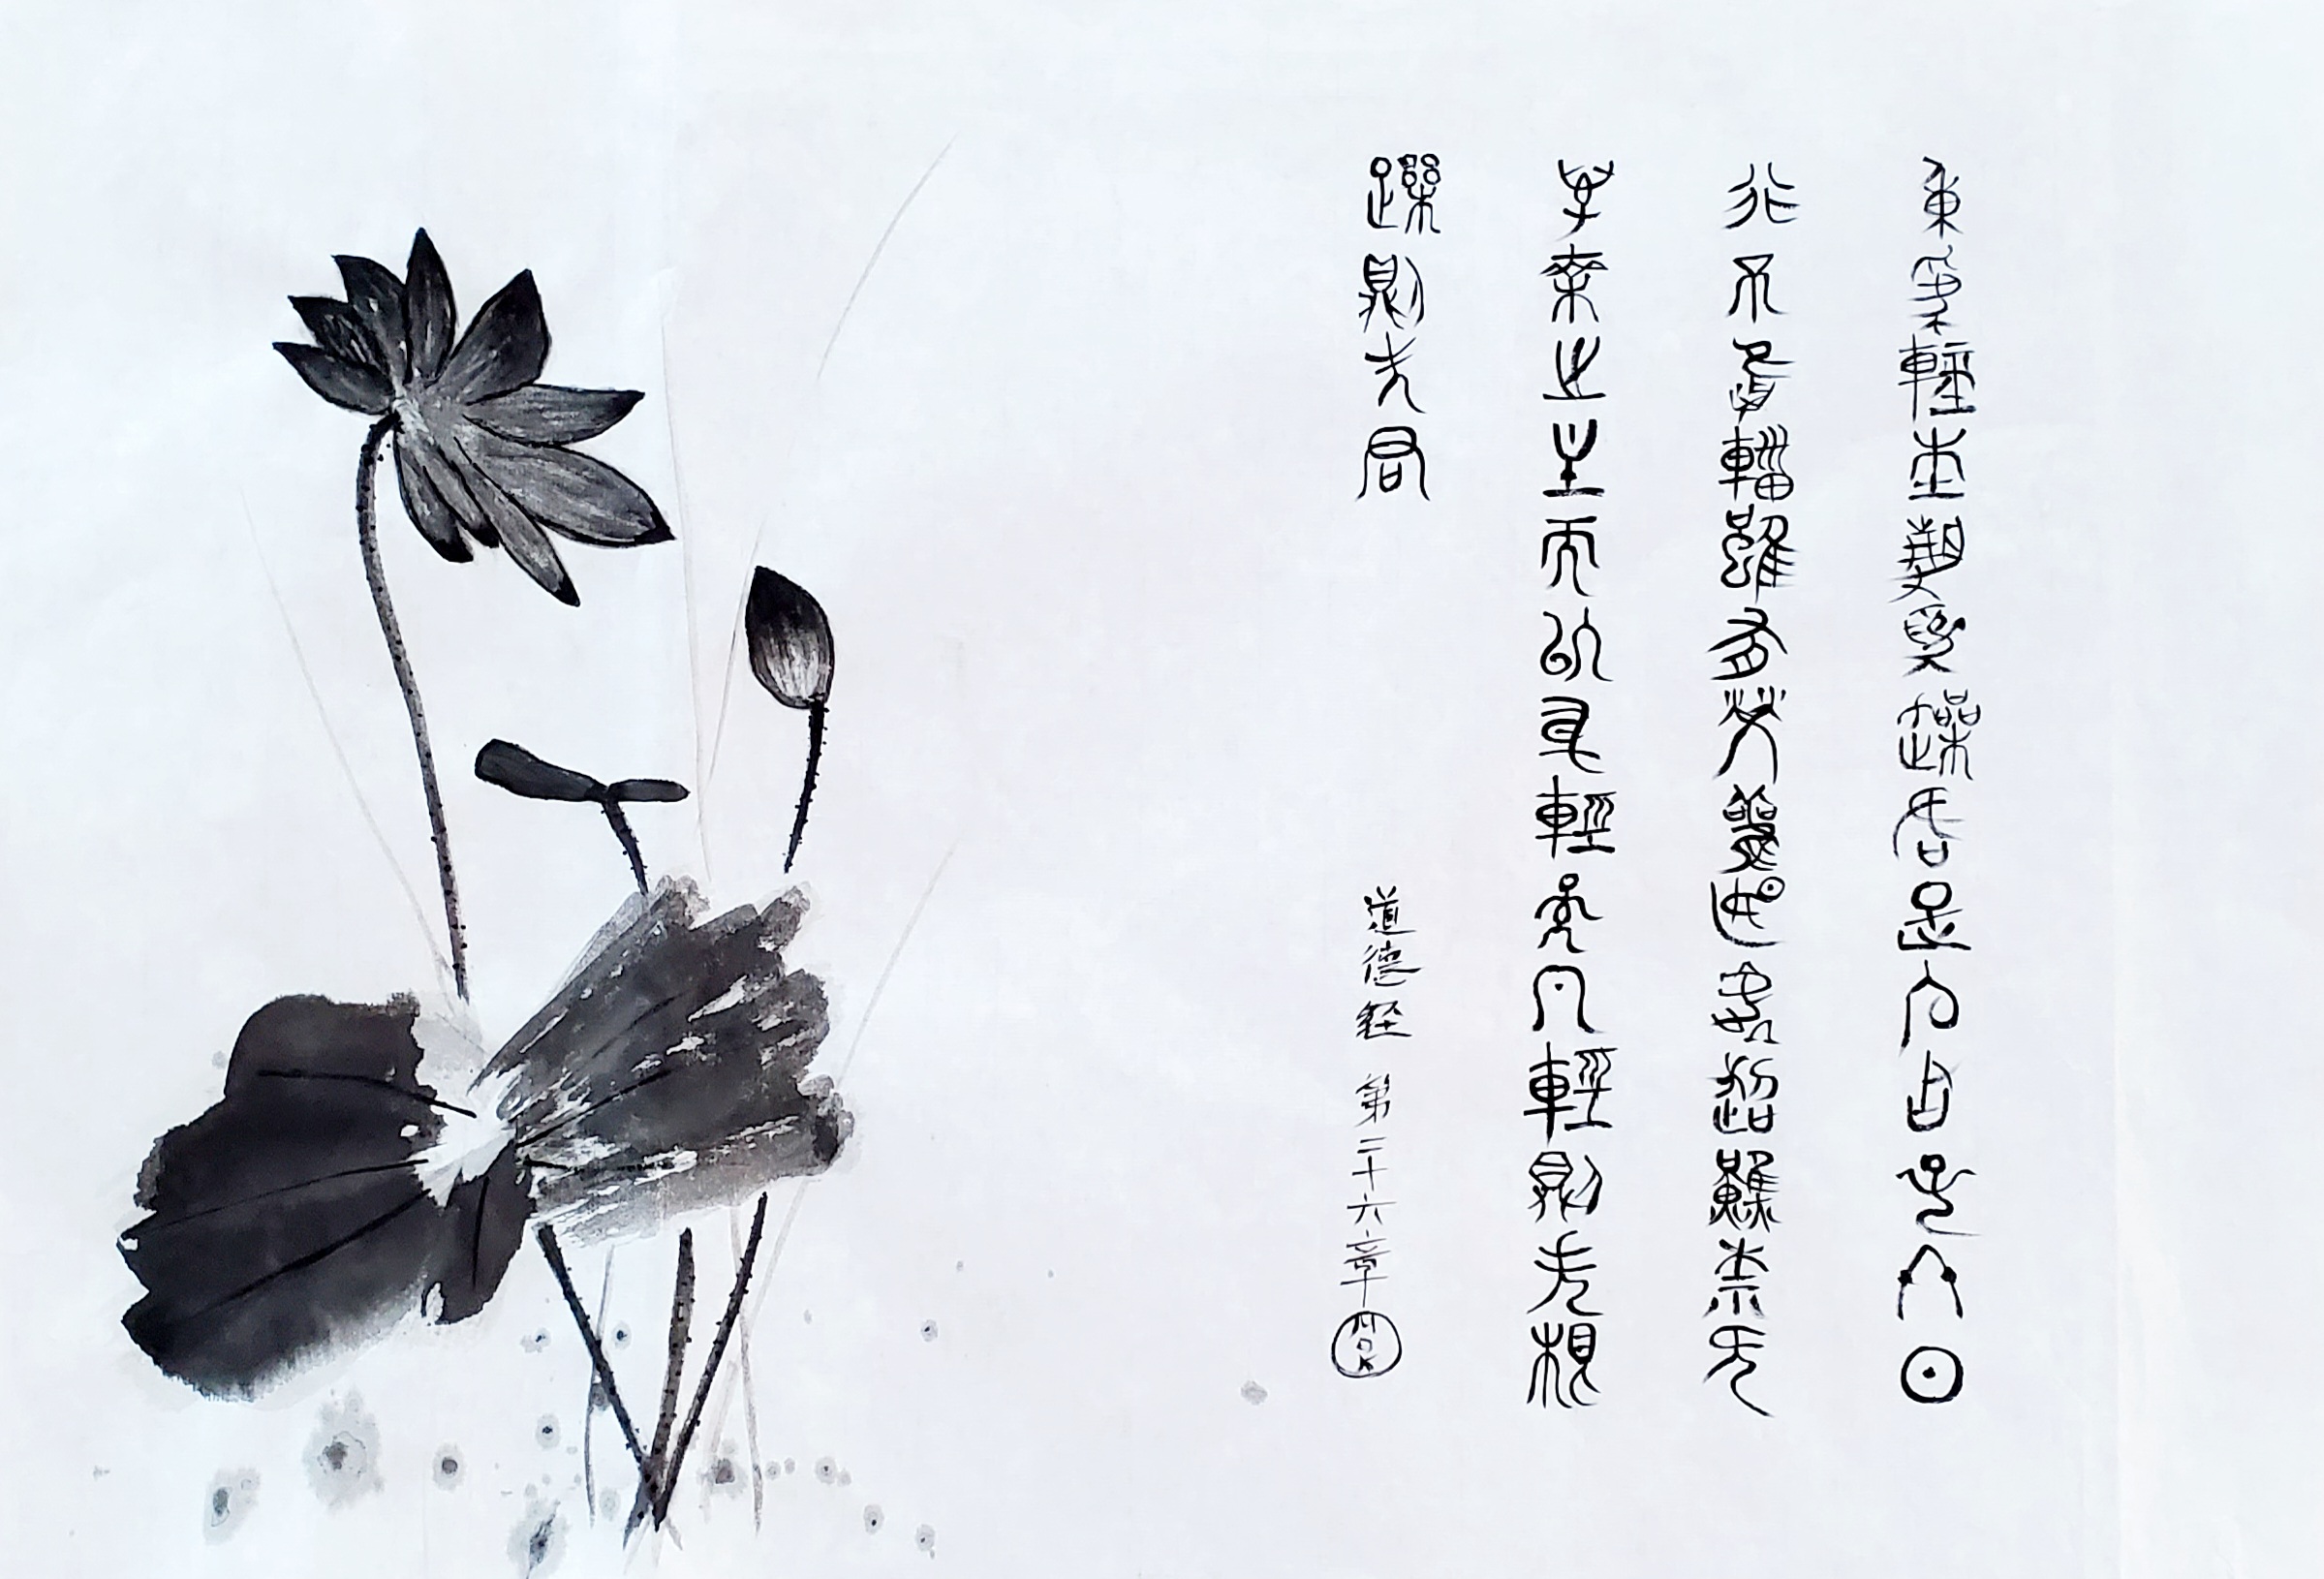 重為輕根靜為躁君是以君子終日
行不離輜雖有榮觀燕處超然奈何
萬乘之主而以身輕輕則失根
躁則失君
道德經 第二十六章